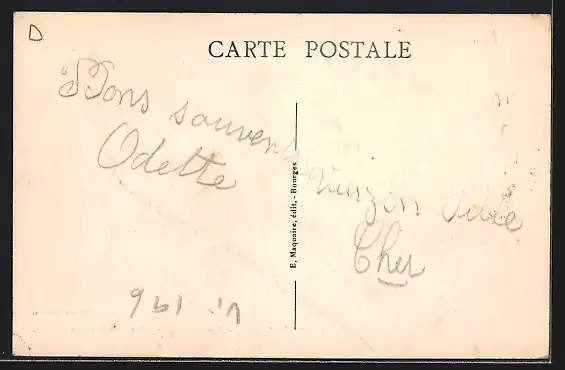 D
CARTE POSTALE
Bons souvenirs
Odette
E. Maquaire, édit. - Bourges
Vierzon Ville
Cher